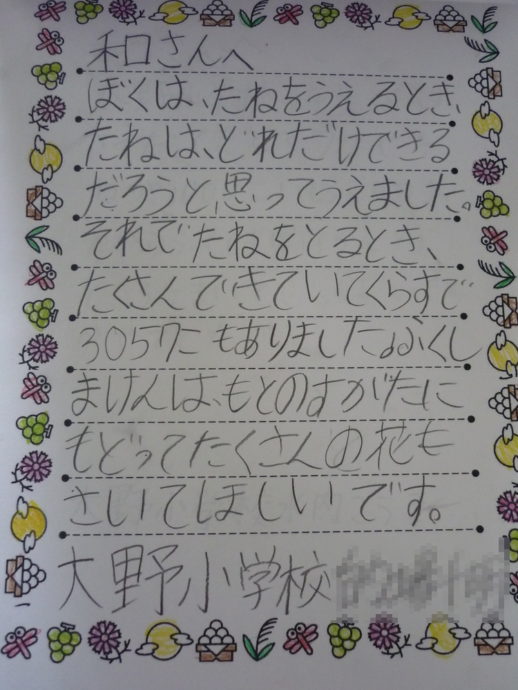 和口さんへ
ぼくは、たねをうえるとき、
たねは、どれだけできる
だろうと、思ってうえました。
それでたねをとるとき、
たくさんできていてくらすで
3057こもありました。ふくし
まけんは、もとのすがたに
もどってたくさんの花も
さいてほしいです。
大野小学校